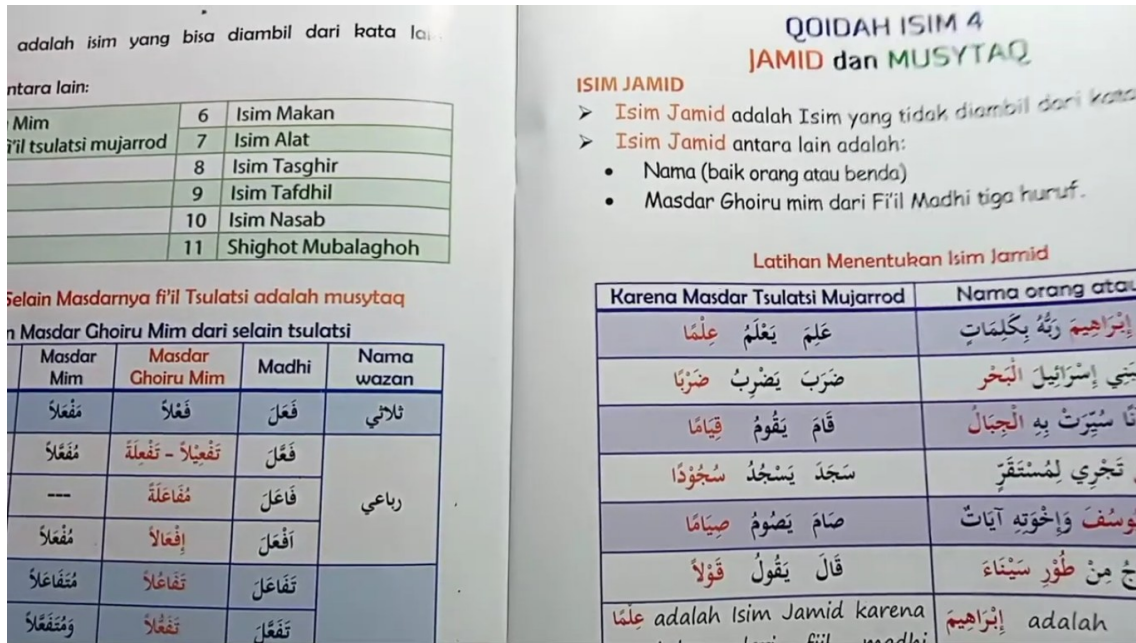 adalah isim yang bisa diambil dari kata
ntara lain:
Mim
fi'il tsulatsi mujarrod
6 Isim Makan
7 Isim Alat
8 Isim Tasghir
9 Isim Tafdhil
10 Isim Nasab
11 Shighot Mubalaghoh
Selain Masdarnya fi'il Tsulatsi adalah musytaq
Masdar Ghoiru Mim dari selain tsulatsi
Masdar Mim Masdar Ghoiru Mim Madhi Nama wazan
مَفْعَلاً فَعْلاً فَعَلَ ثلاثي
مُفَعَّلاً تَفْعِيْلاً - تَفْعِلَةً فَعَّلَ رباعي
--- مُفَاعَلَةً فَاعَلَ
مُفْعَلاً إِفْعَالاً اَفْعَلَ
مُتَفَاعَلاً تَفَاعُلاً تَفَاعَلَ
وَمُتَفَعَّلاً تَفَعُّلاً تَفَعَّلَ
QOIDAH ISIM 4
JAMID dan MUSYTAQ
ISIM JAMID
➢ Isim Jamid adalah Isim yang tidak diambil dari kata
➢ Isim Jamid antara lain adalah:
• Nama (baik orang atau benda)
• Masdar Ghoiru mim dari Fi'il Madhi tiga huruf.
Latihan Menentukan Isim Jamid
Karena Masdar Tsulatsi Mujarrod Nama orang atau
عَلِمَ يَعْلَمُ عِلْمًا إِبْرَاهِيمَ رَبُّهُ بِكَلِمَاتٍ
ضَرَبَ يَضْرِبُ ضَرْبًا إِسْرَائِيلَ الْبَحْرَ
قَامَ يَقُومُ قِيَامًا سُيِّرَتْ بِهِ الْجِبَالُ
سَجَدَ يَسْجُدُ سُجُوْدًا تَجْرِي لِمُسْتَقَرٍّ
صَامَ يَصُومُ صِيَامًا وَإِخْوَتِهِ آيَاتٌ
قَالَ يَقُولُ قَوْلاً مِنْ طُوْرِ سَيْنَاءَ
عِلْمًا adalah Isim Jamid karena إِبْرَاهِيمَ adalah